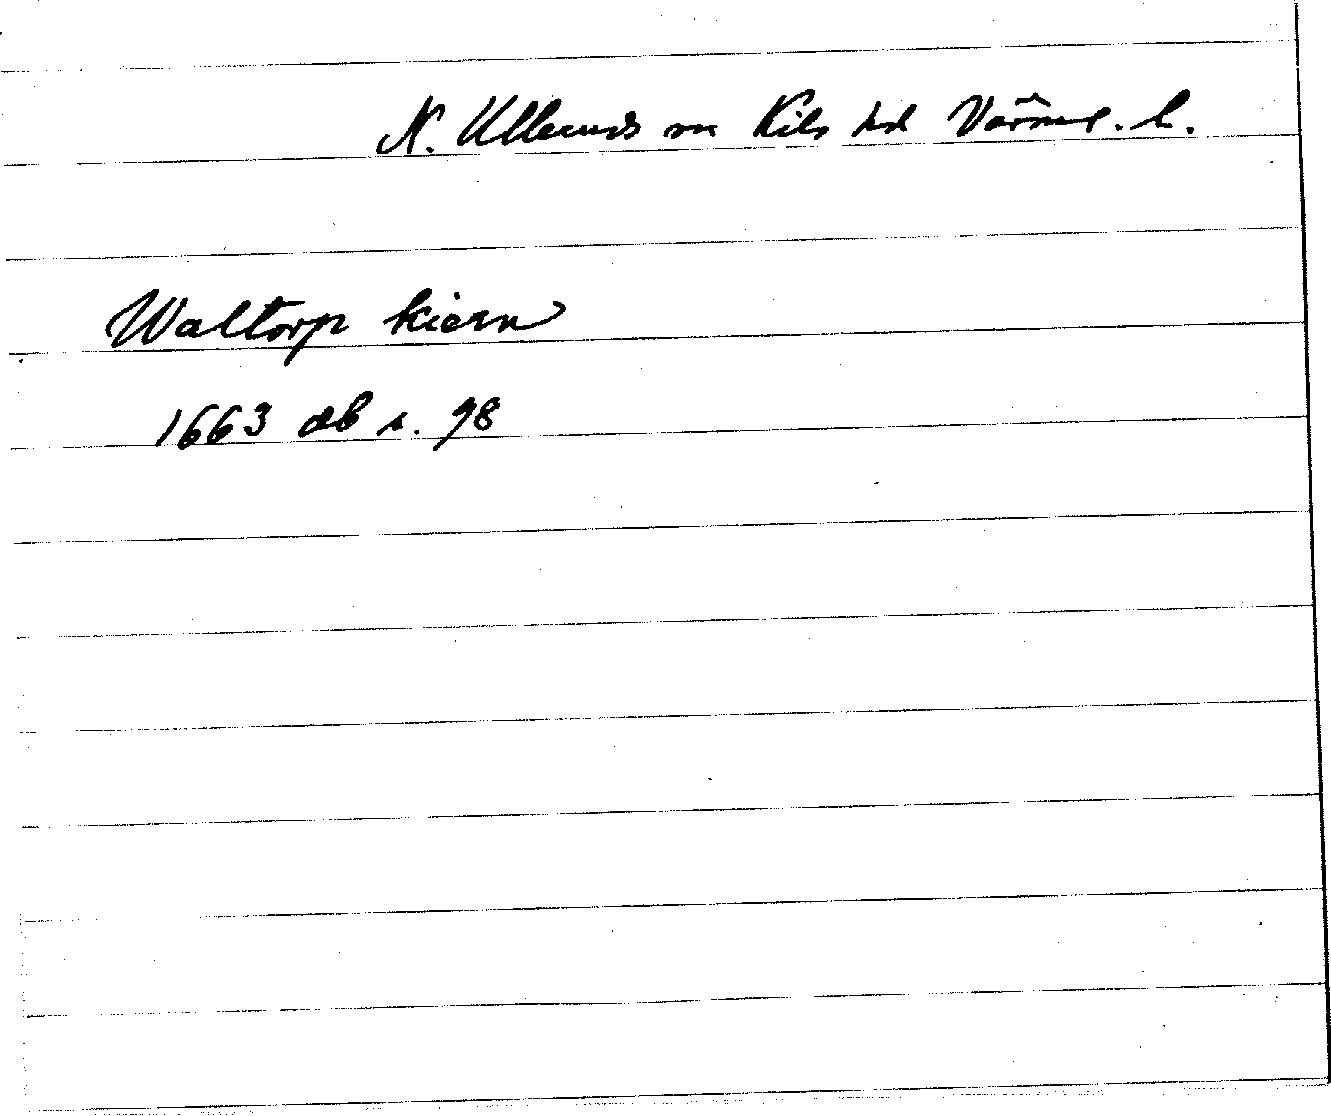 N. Ulleruds sn Kils hd Värml. l.
Waltorp kiern
1663 db s. 98